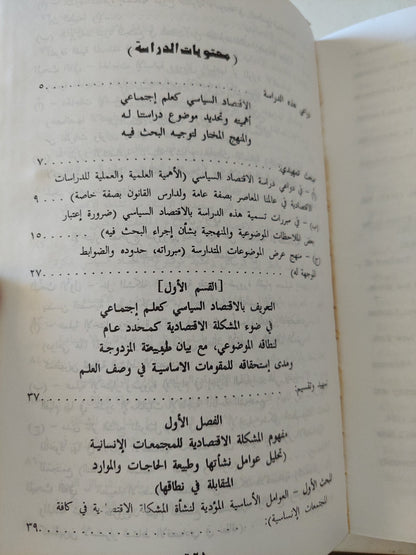 ( محتويات الدراسة )
دواعي هذه الدراسة
٥
الاقتصاد السياسي كعلم إجتماعي
أهميته وتحديد موضوع دراستنا له
والمنهج المختار لتوجيه البحث فيه
مبحث تمهيدي:
٧
(أ) – في دواعي دراسة الاقتصاد السياسي (الأهمية العلمية والعملية للدراسات
الاقتصادية في عالمنا المعاصر بصفة عامة ولدارس القانون بصفة خاصة) ٩
(ب) – في مبررات تسمية هذه الدراسة بالاقتصاد السياسي (ضرورة إعتبار
بعض الملاحظات الموضوعية والمنهجية بشأن إجراء البحث فيه) ١٥
(ج) – منهج عرض الموضوعات المتدارسة (مبرراته، حدوده والضوابط
الموجهة له) ٢٧
[القسم الأول]
التعريف بالاقتصاد السياسي كعلم إجتماعي
في ضوء المشكلة الاقتصادية كمحدد عام
لنطاقه الموضوعي، مع بيان طبيعته المزدوجة
ومدى إستحقاقه للمقومات الاساسية في وصف العلم
تمهيد وتقسيم:
٣٧
الفصل الأول
مفهوم المشكلة الاقتصادية للمجتمعات الإنسانية
(تحليل عوامل نشأتها وطبيعة الحاجات والموارد
المتقابلة في نطاقها)
المبحث الأول – العوامل الأساسية المؤدية لنشأة المشكلة الاقتصادية في كافة
المجتمعات الإنسانية): ٣٩